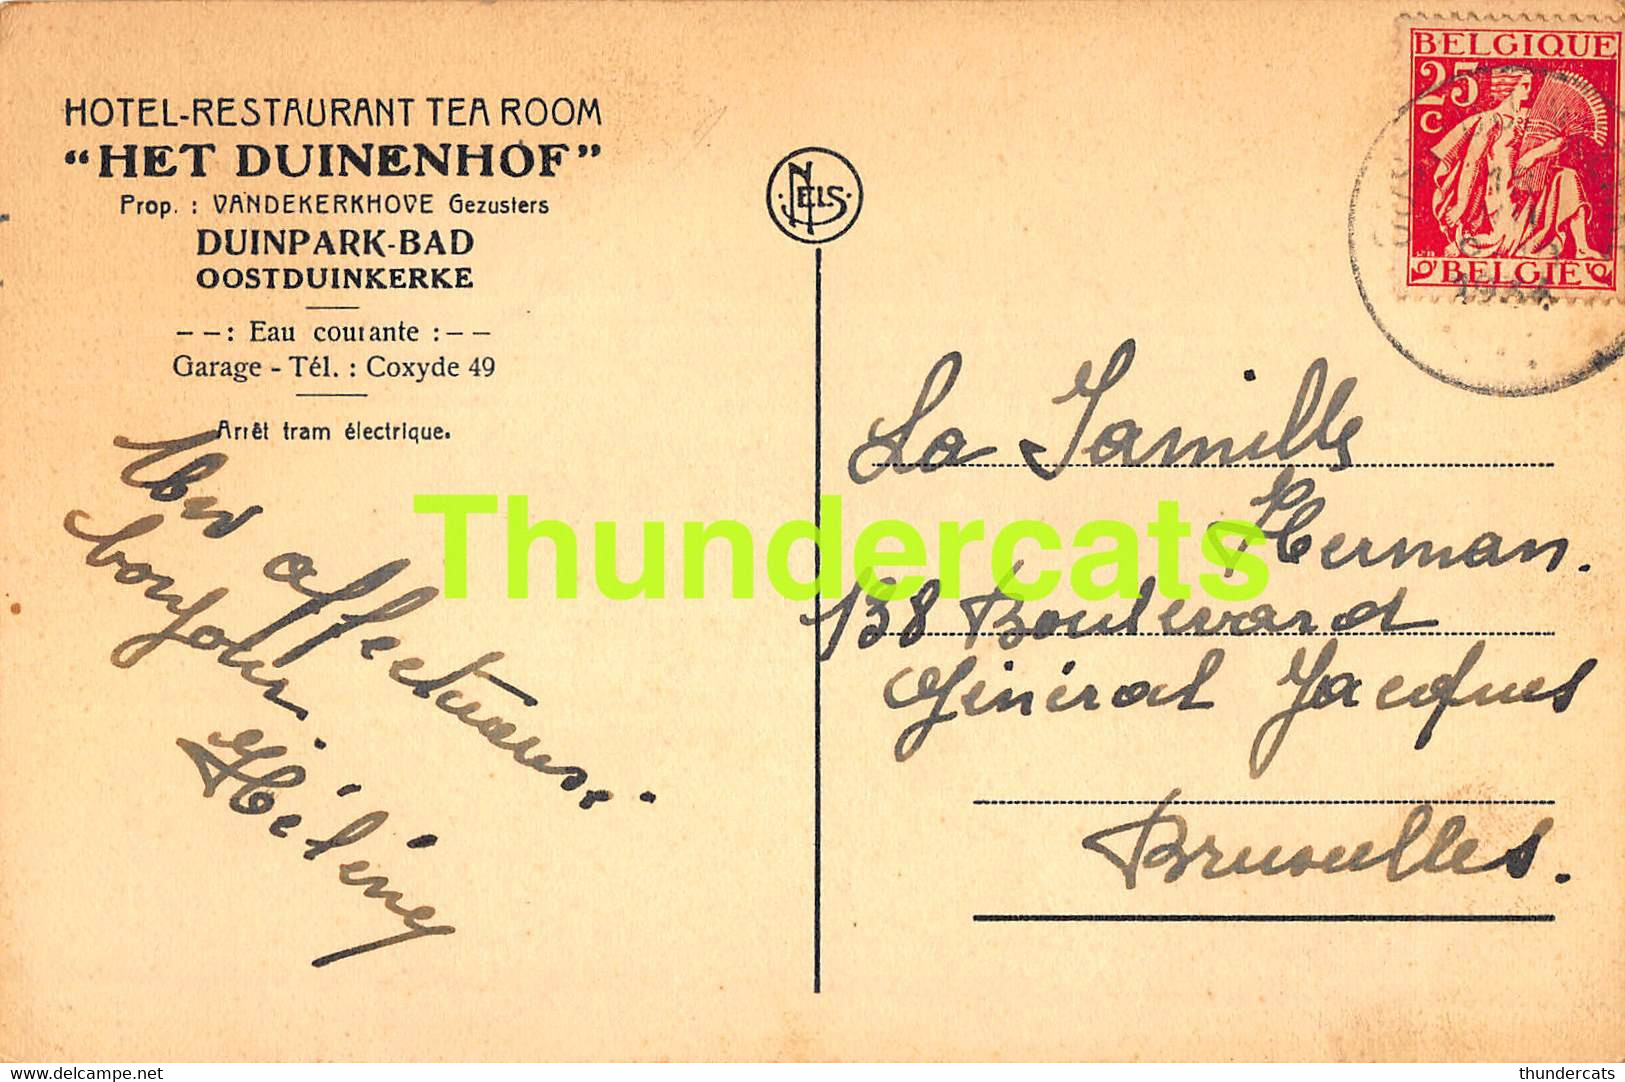 HOTEL-RESTAURANT TEA ROOM
“HET DUINENHOF”
Prop. : VANDEKERKHOVE Gezusters
DUINPARK-BAD
OOSTDUINKERKE
--: Eau courante :--
Garage - Tél. : Coxyde 49
Arrêt tram électrique.
NELS
BELGIQUE
25
C
BELGIË
1934
affectueux
bonjour.
Hélène
La Famille
Herman.
138 Boulevard
Général Jacques
Bruxelles.
Thundercats
delcampe.net
thundercats